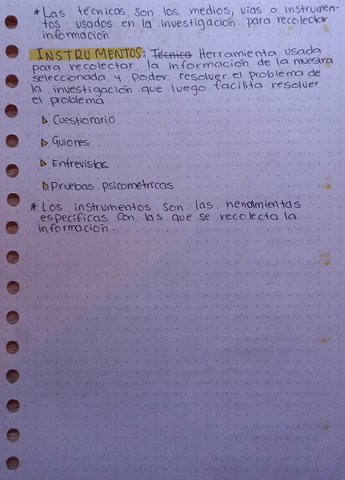 * Las técnicas son los medios, vías o instrumen-
tos usados en la investigación para recolectar
información
INSTRUMENTOS: Técnica Herramienta usada
para recolectar la información de la muestra
seleccionada y poder resolver el problema de
la investigación que luego facilita resolver
el problema.
▷ Cuestionario
▷ Guiones
▷ Entrevistas
▷ Pruebas psicometricas.
* Los instrumentos son las herramientas
especificas con las que se recolecta la
información.